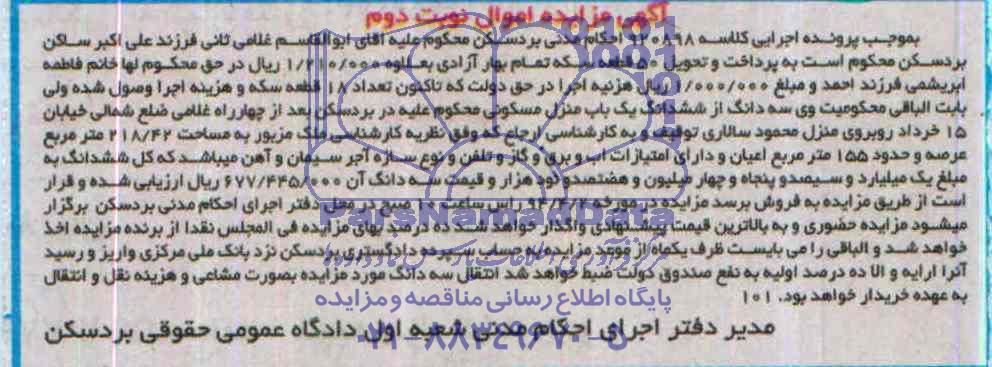 آگهی مزایده اموال نوبت دوم
بموجب پرونده اجرایی کلاسه ۹۲۰۸۹۸ احکام مدنی بردسکن محکوم علیه آقای ابوالقاسم غلامی ثانی فرزند علی اکبر ساکن
بردسکن محکوم است به پرداخت و تحویل ۵۰ قطعه سکه تمام بهار آزادی بعلاوه ۱/۲۱۰/۰۰۰ ریال در حق محکوم لها خانم فاطمه
ابریشمی فرزند احمد و مبلغ ریال هزینه اجرا در حق دولت که تاکنون تعداد ۱۸ قطعه سکه و هزینه اجرا وصول شده ولی
بابت الباقی محکومیت وی سه دانگ از ششدانگ یک باب منزل مسکونی محکوم علیه در بردسکن بعد از چهارراه غلامی ضلع شمالی خیابان
۱۵ خرداد روبروی منزل محمود سالاری توقیف و به کارشناسی ارجاع که وفق نظریه کارشناسی ملک مزبور به مساحت ۲۱۸/۴۲ متر مربع
عرصه و حدود ۱۵۵ متر مربع اعیان و دارای امتیازات آب و برق و گاز و تلفن و نوع سازه آجر سیمان و آهن میباشد که کل ششدانگ به
مبلغ یک میلیارد و سیصدو پنجاه و چهار میلیون و هفتصدو نود هزار و قیمت سه دانگ آن ۶۷۷/۴۴۵/۰۰۰ ریال ارزیابی شده و قرار
است از طریق مزایده به فروش برسد مزایده در مورخه ۹۴/۲/۲ راس ساعت ۱۰ صبح در محل دفتر اجرای احکام مدنی بردسکن برگزار
میشود مزایده حضوری و به بالاترین قیمت پیشنهادی واگذار خواهد شد ده درصد بهای مزایده فی المجلس نقدا از برنده مزایده اخذ
خواهد شد و الباقی را می بایست ظرف یکماه از موعد مزایده به حساب سپرده دادگستری بردسکن نزد بانک ملی مرکزی واریز و رسید
آنرا ارایه و الا ده درصد اولیه به نفع صندوق دولت ضبط خواهد شد انتقال سه دانگ مورد مزایده بصورت مشاعی و هزینه نقل و انتقال
به عهده خریدار خواهد بود. ۱۰۱
مدیر دفتر اجرای احکام مدنی شعبه اول دادگاه عمومی حقوقی بردسکن
ParsNamadData
پایگاه اطلاع رسانی مناقصه و مزایده
۰۲۱-۸۸۳۴۹۶۷۰-۵